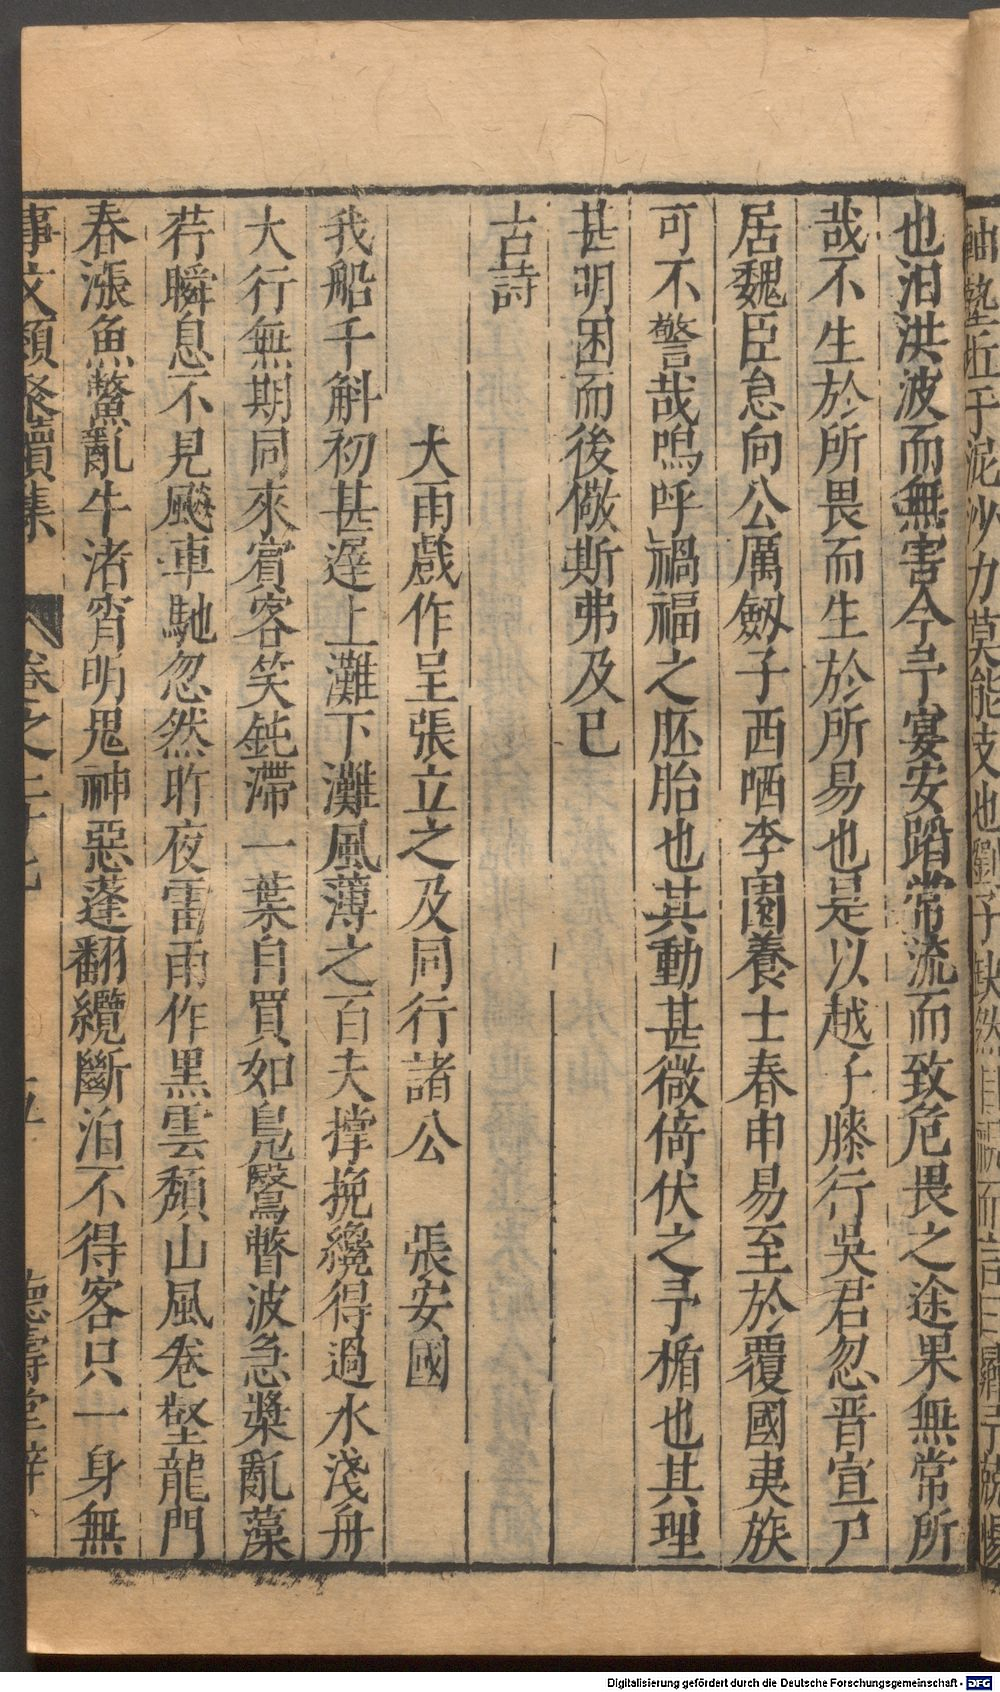 也汨洪波而無害今予宴安蹈常流而致危畏之途果無常所
哉不生於所畏而生於所易也是以越子膝行吳君忽晋宣尸
居魏臣怠向公厲劒子西哂李園養士春申易至於覆國夷族
可不警哉嗚呼禍福之胚胎也其動甚微倚伏之矛楯也其理
甚明困而後儆斯弗及已
古詩
大雨戲作呈張立之及同行諸公 張安國
我船千斛初甚遲上灘下灘風薄之百夫撐挽纔得過水淺舟
大行無期同來賓客笑鈍滯一葉自買如鳧鷖瞥波急槳亂藻
荇瞬息不見颷車馳忽然昨夜雷雨作黑雲頹山風卷壑龍門
春漲魚鱉亂牛渚宵明鬼神惡蓬翻纜斷泊不得客只一身無
事文類聚續集 卷之二十七 五 德壽堂梓
Digitalisierung gefördert durch die Deutsche Forschungsgemeinschaft - DFG